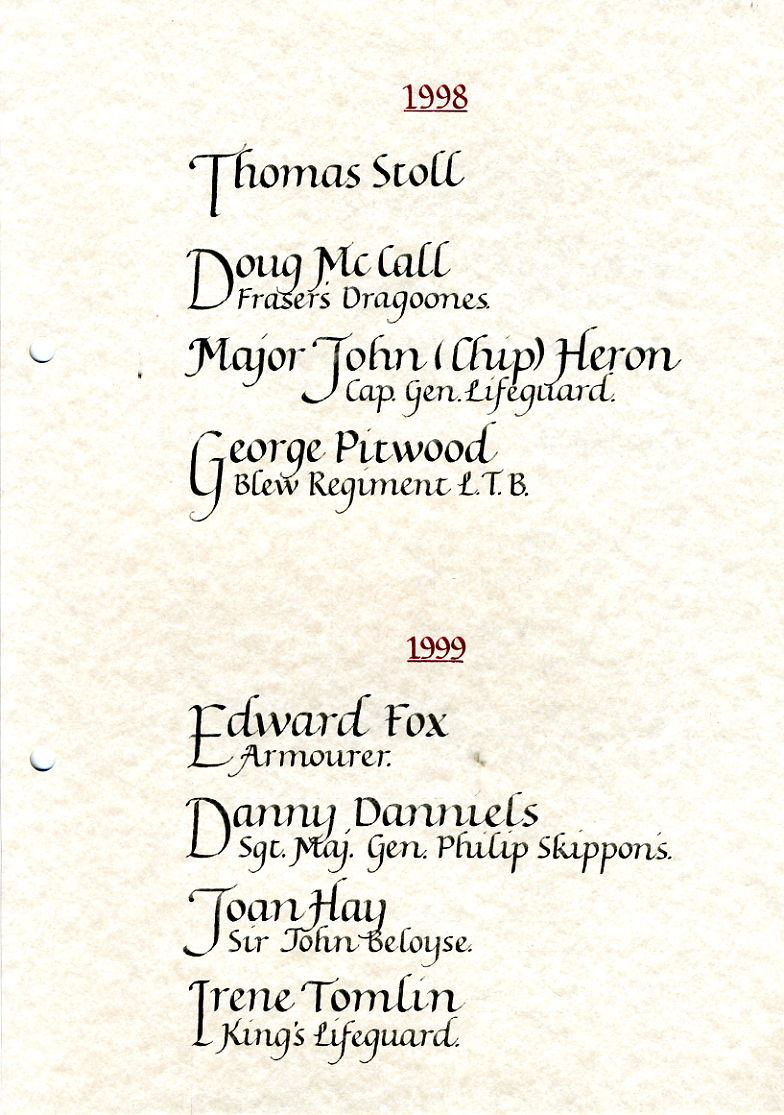 1998
Thomas Stoll
Doug McCall
Fraser's Dragoones.
Major John (Chip) Heron
Cap. Gen. Lifeguard.
George Pitwood
Blew Regiment L.T.B.
1999
Edward Fox
Armourer.
Danny Danniels
Sgt. Maj. Gen. Philip Skippon's.
Joan Hay
Sir John Beloyse.
Irene Tomlin
King's Lifeguard.